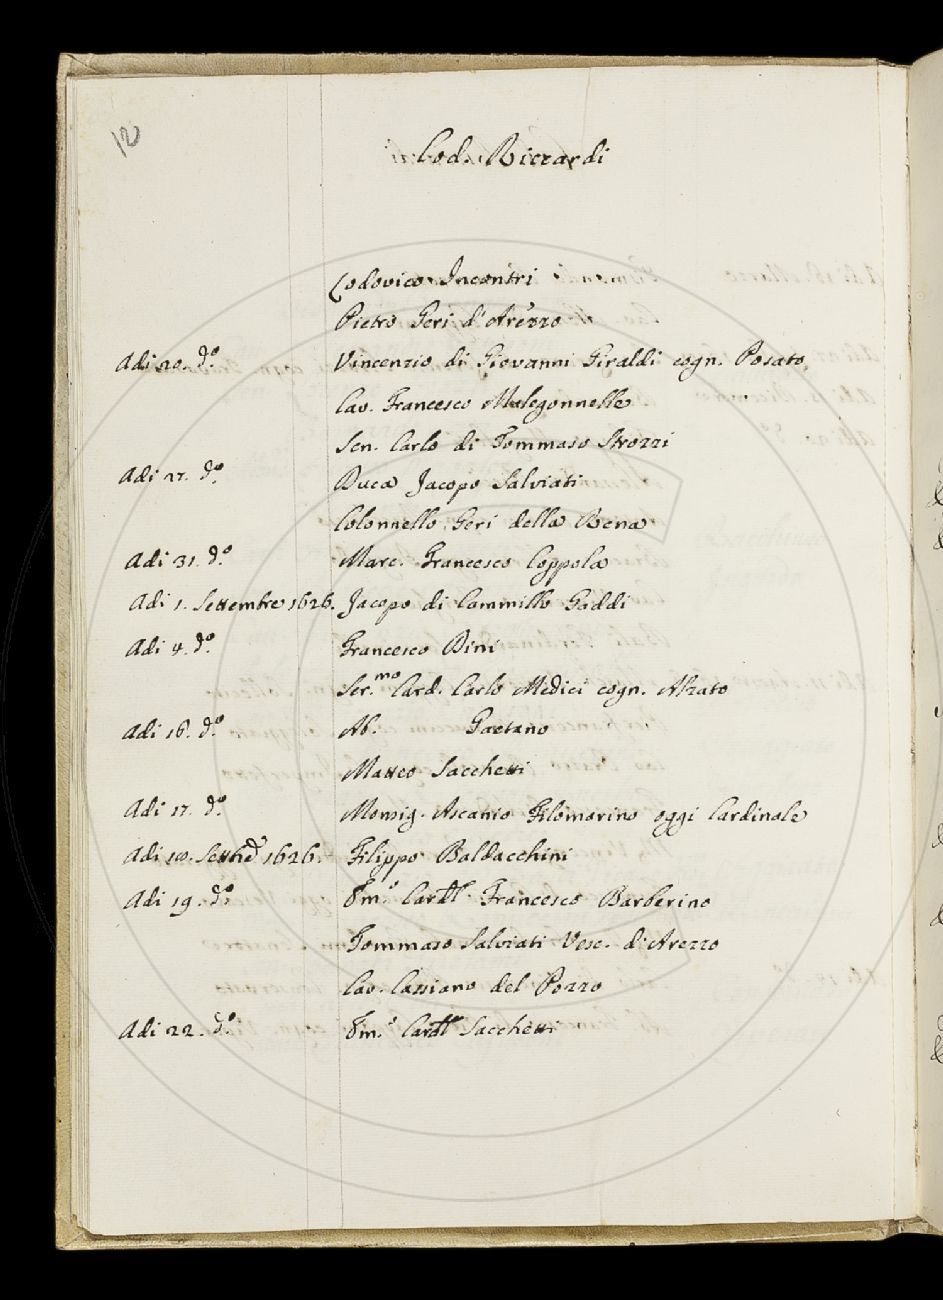 12
Cod. Riccardi
Lodovico Incontri
Pietro Geri d'Arezzo
Adi 20. do. Vincenzio di Giovanni Giraldi cogn. Posato
Cav. Francesco Malegonnelle
Sen. Carlo di Tommaso Strozzi
Adi 27. do. Duca Jacopo Salviati
Colonnello Geri della Rena
Adi 31. do. Marc. Francesco Coppola
Adi 1. Settembre 1626. Jacopo di Cammillo Gaddi
Adi 4. do. Francesco Bini
Ser.mo Card. Carlo Medici cogn. Alzato
Adi 16. do. Ab. Gaetano
Matteo Sacchetti
Adi 17. do. Monsig. Ascanio Filomarino oggi Cardinale
Adi 18. Settre 1626. Filippo Baldacchini
Adi 19. do. Em.o Cardl. Francesco Barberino
Tommaso Salviati Vesc. d'Arezzo
Cav. Cassiano del Pozzo
Adi 22. do. Em.o Cardl Sacchetti